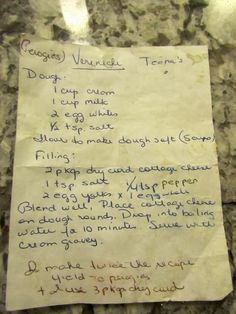 (Perogies) Vernicki Teena's
Dough:
1 cup cream
1 cup milk
2 egg whites
1/2 tsp. salt
flour to make dough soft (5 cups)
Filling:
2 pkgs dry curd cottage cheese
1 tsp salt 1/4 tsp pepper
2 egg yolks x 1 egg whole
Blend well. Place cottage cheese
on dough rounds. Drop into boiling
water for 10 minutes. Serve with
cream gravey.
I make twice the recipe
yield 70 perogies
+ I use 3 pkgs dry curd